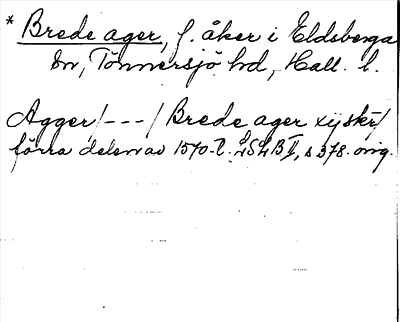 * Brede ager, f. åker i Eldsberga
sn, Tönnersjö hd, Hall. l.
Agger /---/ Brede ager xij skr/
förra delen av 1570-t. LSLB II, s 378. orig.